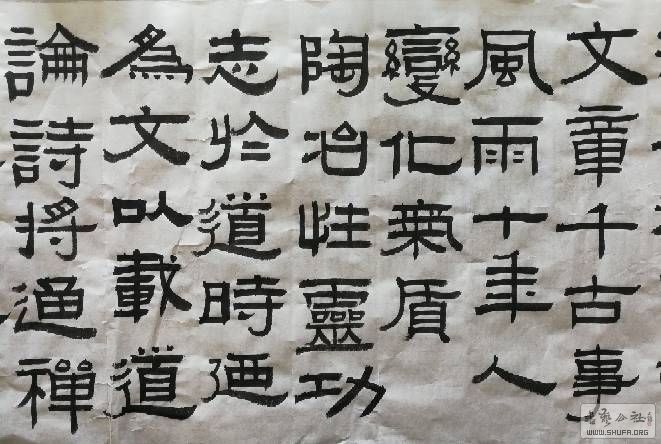 文章千古事
風雨十年人
變化氣質
陶冶性靈功
志於道時迺
為文以載道
論詩將通禪
书艺公社
WWW.SHUFA.ORG